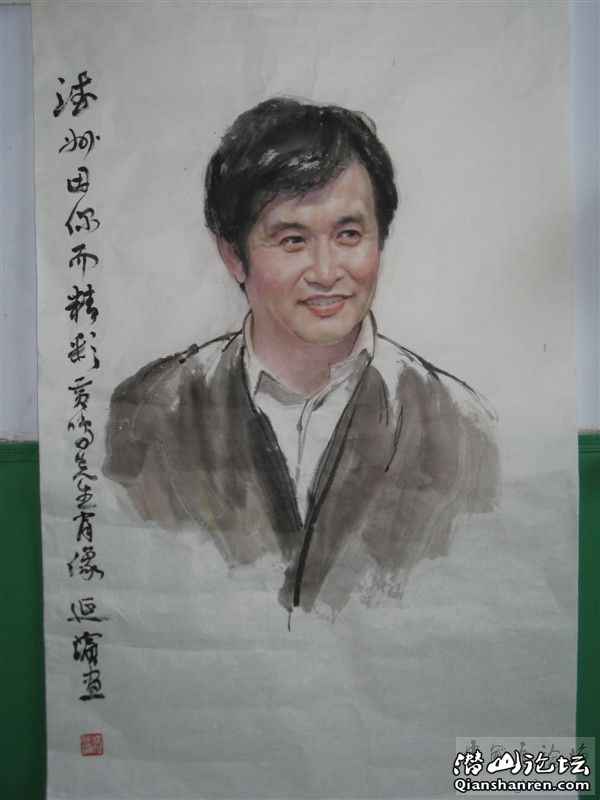 德州因你而精彩 黄鸣先生肖像 延 画
潜山论坛
Qianshanren.com